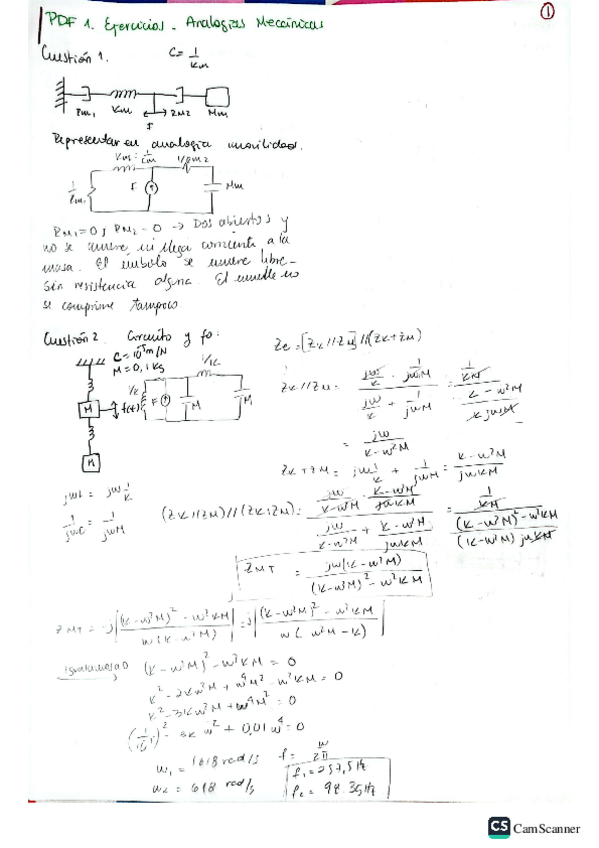 PDF 1. Ejercicios. Analogías Mecánicas
1
Cuestión 1.
C = 1/Km
Km
ZM2
Mm
F
Representar en analogía movilidad.
F
Mm
RM1 = 0, RM2 = 0 → Dos abiertos y
no se mueve ni llega corriente a la
masa. El émbolo se mueve libre-
sin resistencia alguna. El muelle no
se comprime tampoco
Cuestión 2. Circuito y fo:
C = 10⁻⁵ m/N
M = 0,1 Kg
1/K
M
f(t)
1/K
F
M
M
M
Ze = [ZK//ZM]//(ZK+ZM)
ZK//ZM = (jω/K · 1/jωM)/(jω/K + 1/jωM) = (1/KM)/((K - ω²M)/KjωM)
= jω/(K - ω²M)
ZK + ZM = jω 1/K + 1/jωM = (K - ω²M)/jωKM
jωL = jω 1/K
1/jωC = 1/jωM
(ZK//ZM)//(ZK+ZM) = (jω/(K-ω²M) · (K-ω²M)/jωKM)/(jω/(K-ω²M) + (K-ω²M)/jωKM) = (1/KM)/(((K-ω²M)² - ω²KM)/((K-ω²M) jωKM))
ZMT = jω(K - ω²M)/((K-ω²M)² - ω²KM)
ZMT = -j|((K-ω²M)² - ω²KM)/(ω(K-ω²M))| = j|((K-ω²M)² - ω²KM)/(ω(ω²M-K))|
Igualamos a 0
(K - ω²M)² - ω²KM = 0
K² - 2Kω²M + ω⁴M² - ω²KM = 0
K² - 3Kω²M + ω⁴M² = 0
ω² + 0,01 ω⁴ = 0
ω₁ = 1618 rad/s
f = ω/2π
ω₂ = 618 rad/s
f₁ = 257,5 Hz
f₂ = 98.35 Hz
CS CamScanner